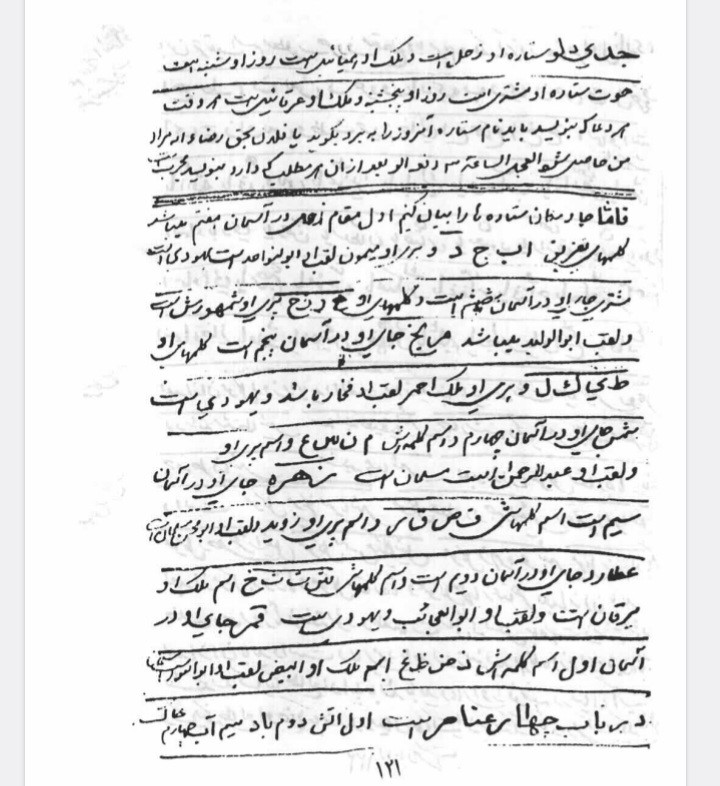 جدي دلو ستاره او زحل است و ملك او است روز او شنبه است
حوت ستاره او مشتری است روز او پنجشنبه و ملك او است هر وقت
هر دعا كه بنويسد بايد نام ستاره آنروز را به برد بگويد يا فلان بحق رضا و او مراد
من حاصل شو العجل الساعة ۳ دفعه و بعد از ان هر مطلب كه دارد بنويسد مجربست
فامّا جا و مكان ستاره ها را بيان كنيم اول مقام زحل در آسمان هفتم ميباشد
كلمهای ا ب ج د و پری او ميمون لقب او است يهودي است
مشتری جای او در آسمان ششم است و كلمهای او ه و ز ح پری او شمهورش است
و لقب ابوالوليد ميباشد مريخ جای او در آسمان پنجم است كلمهای او
ط ي ك ل و پری او ملك احمر لقب او فخار باشد و يهودي است
شمس جای او در آسمان چهارم و اسم كلمه اش م ن س ع و اسم پری او
و لقب او عبدالرحمن است مسلمان است زهره جای او در آسمان
سيم است اسم كلمهاش ف ص ق ر و اسم پری او زوبعه و لقب او
عطارد جای او در آسمان دويم است و اسم كلمهاش ش ت ث خ اسم ملك او
برقان است و لقب او ابوالعجائب و يهودی است قمر جای او در
آسمان اول اسم كلمه اش ذ ض ظ غ اسم ملك او ابيض لقب او ابوالنور است
در باب چهار عناصر است اول اتش دوم باد سيم آب چهارم خاك
۱۲۱